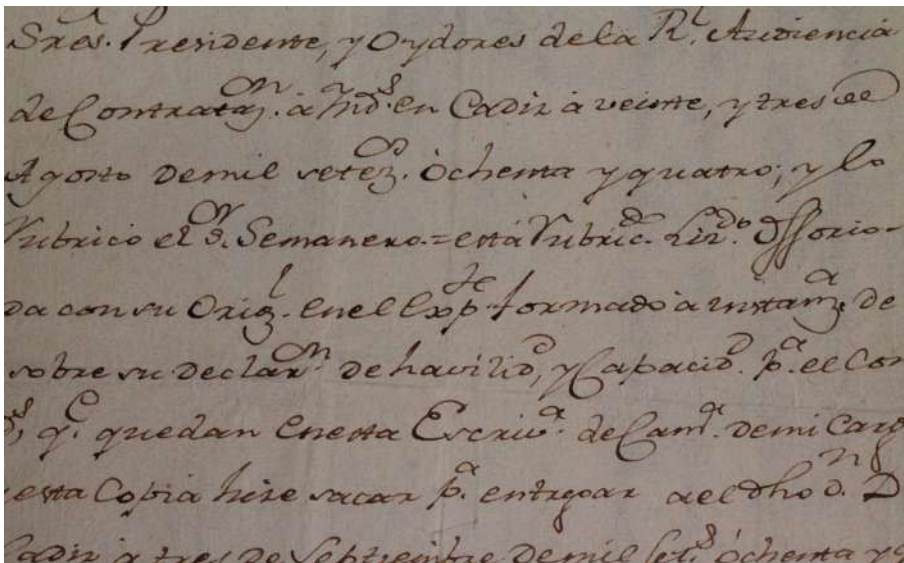 Sres. Presidente, y Oydores de la Rl. Audiencia
de Contratazn. à Ynds. en Cadiz à veinte, y tres de
Agosto de mil setezs. ôchenta y quatro; y lo
rubricó el Sr. Semanero.= està rubricdo. Lizdo. Ossorio-
da con su Origl. en el Expte. formado à instanza. de
sobre su declarn. de havilid, y Capacid. pa. el Com
s, qe. quedan en esta Escriva. de Cama. de mi Carg
esta Copia hize sacar pa. entregar ael dho dn. D
Cadiz a tres de Septiembre de mil sets. ôchenta y q